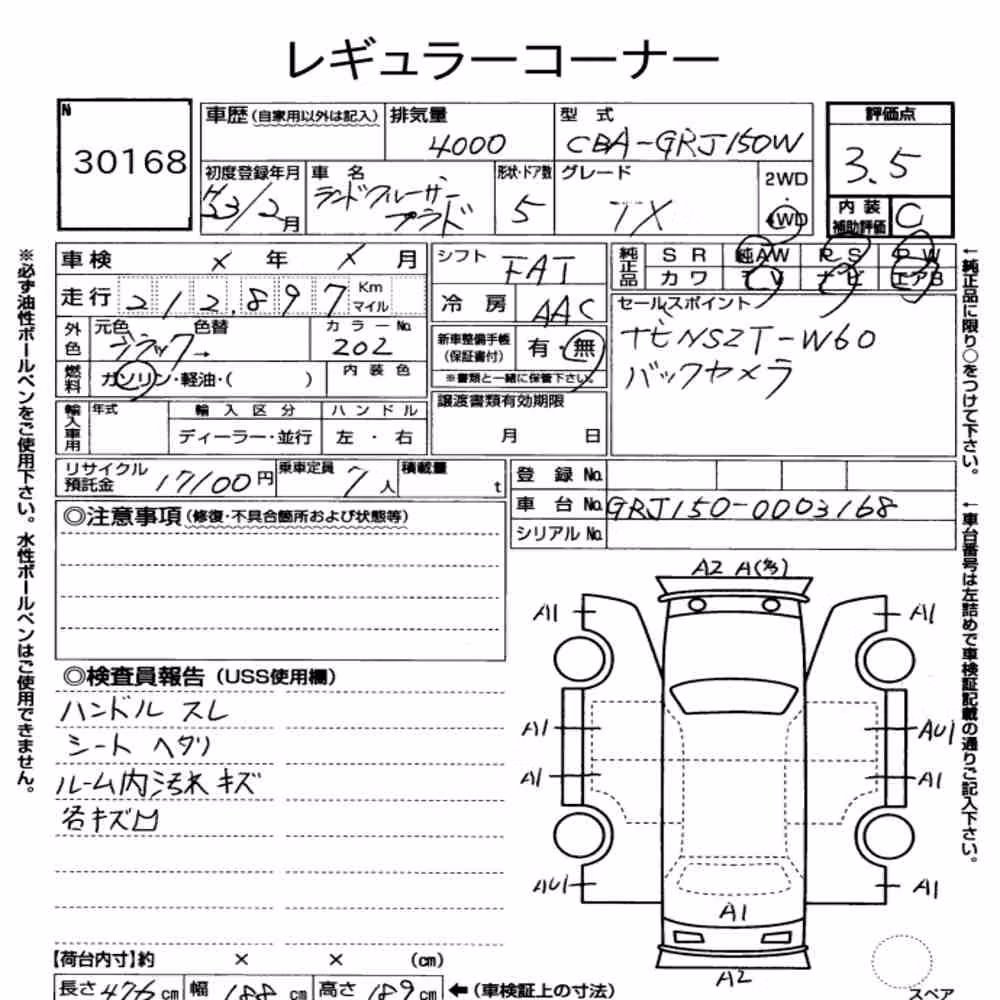 レギュラーコーナー
N
30168
車歴(自家用以外は記入)
排気量
4000
型 式
CBA-GRJ150W
評価点
3.5
初度登録年月
/2月
車 名
ランドクルーザー
プラド
形状・ドア数
5
グレード
TX
2WD
4WD
内 装
補助評価
C
車検 × 年 × 月
シフト
FAT
純正品
S R
純AW
P S
P W
カ ワ
T V
ナ ビ
エアB
走行
212,897
Km
マイル
冷 房
AAC
セールスポイント
ナビNSZT-W60
バックカメラ
外色
元色
ブラック
色替
→
カラーNo.
202
新車整備手帳
(保証書付)
有・無
※書類と一緒に保管下さい。
燃料
ガソリン・軽油・( )
内 装 色
輸入車用
年式
輸 入 区 分
ハ ン ド ル
ディーラー・並行
左 ・ 右
譲渡書類有効期限
月 日
リサイクル
預託金
17100円
乗車定員
7人
積載量
t
登 録 No.
車 台 No.
GRJ150-0003168
シリアル No.
◎注意事項(修復・不具合箇所および状態等)
◎検査員報告(USS使用欄)
ハンドル スレ
シート ヘタリ
ルーム内汚れ キズ
各キズ凹
A2
A1
A1
A1
AU1
A1
A1
AU1
A1
A1
A2
スペア
【荷台内寸】約 × × (cm)
長さ476cm
幅188cm
高さ189cm
←(車検証上の寸法)
※必ず油性ボールペンをご使用下さい。水性ボールペンはご使用できません。
←純正品に限り○をつけて下さい。
←車台番号は左詰めで車検証記載の通りご記入下さい。